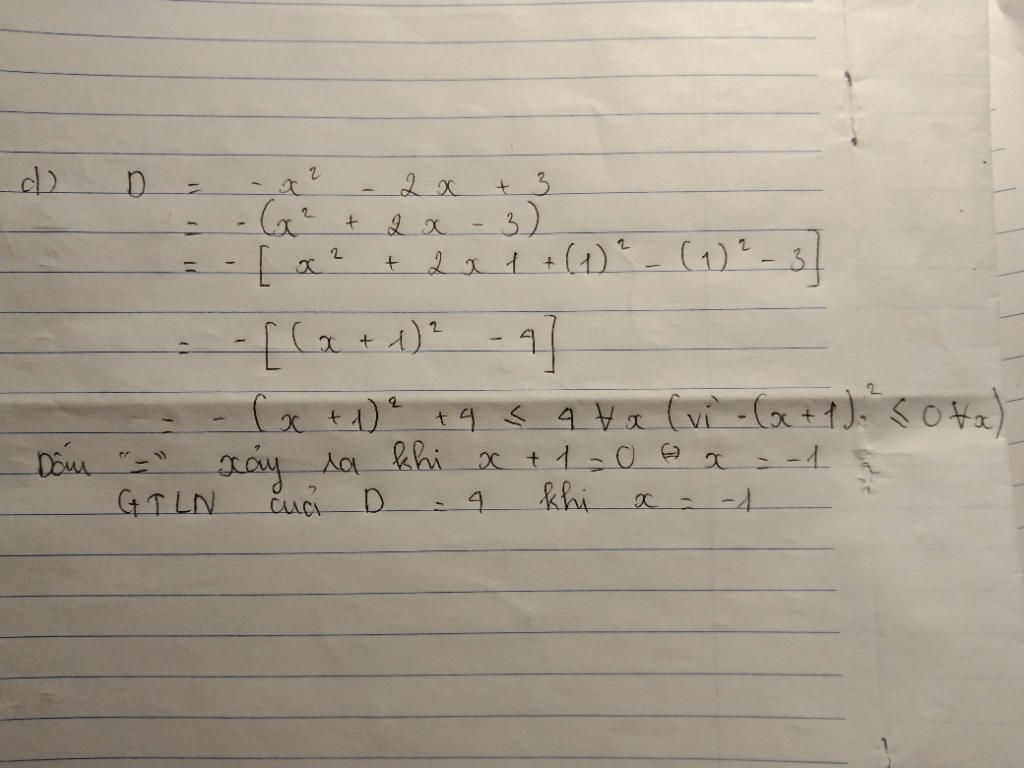 d) D = -x² - 2x + 3
= -(x² + 2x - 3)
= -[x² + 2x1 + (1)² - (1)² - 3]
= -[(x + 1)² - 4]
= -(x + 1)² + 4 ≤ 4 ∀x (vì -(x+1)² ≤ 0 ∀x)
Dấu "=" xảy ra khi x + 1 = 0 ⇔ x = -1
GTLN của D = 4 khi x = -1